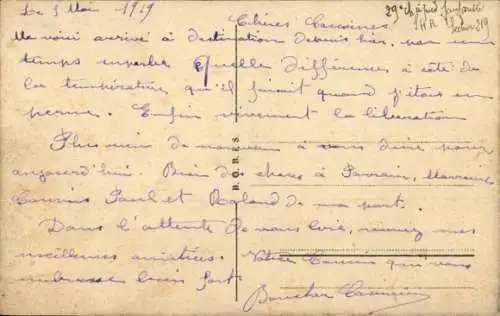 Le 5 Mai 1919
Chères Cousines
Me voici arrivé à destination depuis hier, par un
temps superbe quelle différence à côté de
la température qu'il faisait quand j'étais en
perme. Enfin vivement la libération
Plus rien de nouveau à vous dire pour
aujourd'hui. Bien des choses à Parrain, Marraine
Cousins Paul et Roland de ma part.
Dans l'attente de vous lire, recevez mes
meilleures amitiés. Votre Cousin qui vous
embrasse bien fort
Boucher
D.O.R.E.S.